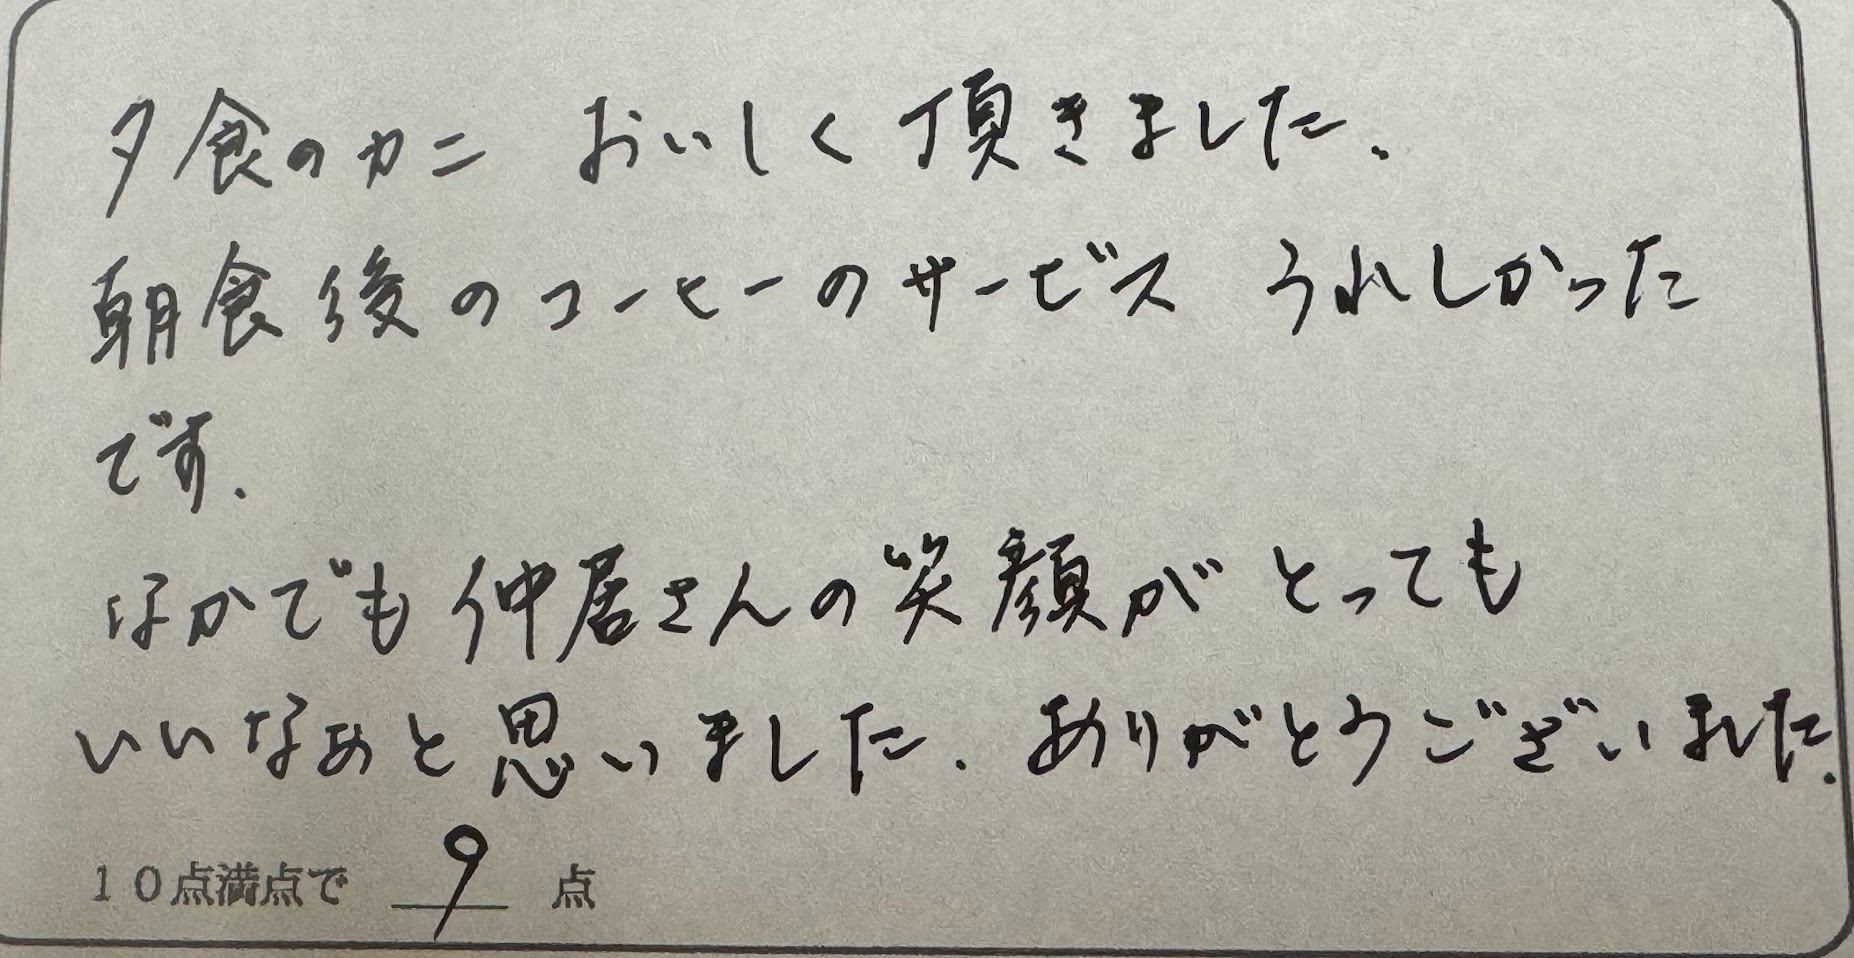 夕食のカニ おいしく頂きました.
朝食後のコーヒーのサービス うれしかった
です.
ほかでも仲居さんの笑顔がとっても
いいなぁと思いました. ありがとうございました.
10点満点で 9 点